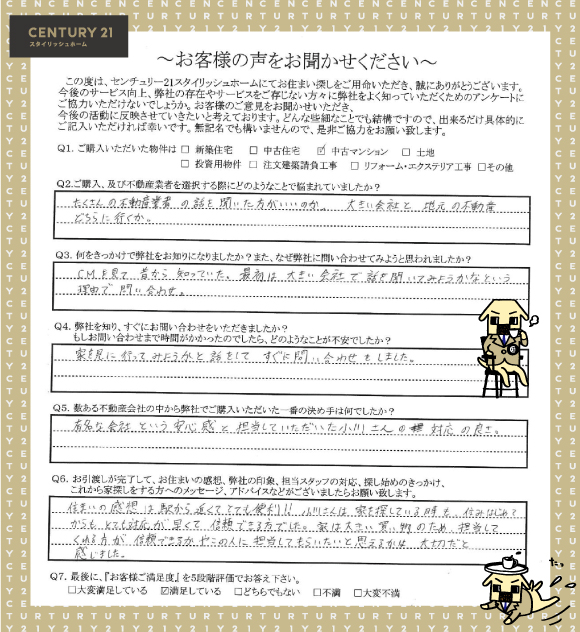 CENTURY 21
スタイリッシュホーム
～お客様の声をお聞かせください～
この度は、センチュリー21スタイリッシュホームにてお住まい探しをご用命いただき、誠にありがとうございます。
今後のサービス向上、弊社の存在やサービスをご存じない方々に弊社をよく知っていただくためのアンケートに
ご協力いただけないでしょうか。お客様のご意見をお聞かせいただき、
今後の活動に反映させていきたいと考えております。どんな些細なことでも結構ですので、出来るだけ具体的に
ご記入いただければ幸いです。無記名でも構いませんので、是非ご協力をお願い致します。
Q1. ご購入いただいた物件は □ 新築住宅 □ 中古住宅 ☑ 中古マンション □ 土地
□ 投資用物件 □ 注文建築請負工事 □ リフォーム・エクステリア工事 □その他
Q2.ご購入、及び不動産業者を選択する際にどのようなことで悩まれていましたか？
たくさんの不動産業者の話を聞いた方がいいのか。 大きい会社と地元の不動産
どちらに行くか。
Q3. 何をきっかけで弊社をお知りになりましたか？また、なぜ弊社に問い合わせてみようと思われましたか？
CMを見て昔から知っていた。最初は大きい会社で話を聞いてみようかなという
理由で問い合わせ。
Q4. 弊社を知り、すぐにお問い合わせをいただきましたか？
もしお問い合わせまで時間がかかったのでしたら、どのようなことが不安でしたか？
家を見に行ってみようかと話をして、すぐに問い合わせをしました。
Q5. 数ある不動産会社の中から弊社でご購入いただいた一番の決め手は何でしたか？
有名な会社という安心感と担当していただいた小川さんの対応の良さ。
Q6. お引渡しが完了して、お住まいの感想、弊社の印象、担当スタッフの対応、探し始めのきっかけ、
これから家探しをする方へのメッセージ、アドバイスなどがございましたらお願い致します。
住まいの感想は駅から近くてとても便利!! 小川さんは家を探している時も、住みはじめて
からも、とても対応が早くて信頼できる方でした。家は大きい買い物のため、担当して
くれる方が信頼できるかやこの人に担当してもらいたいと思えるかは大切だと
感じました。
Q7. 最後に、『お客様ご満足度』を5段階評価でお答え下さい。
□大変満足している ☑満足している □どちらでもない □不満 □大変不満